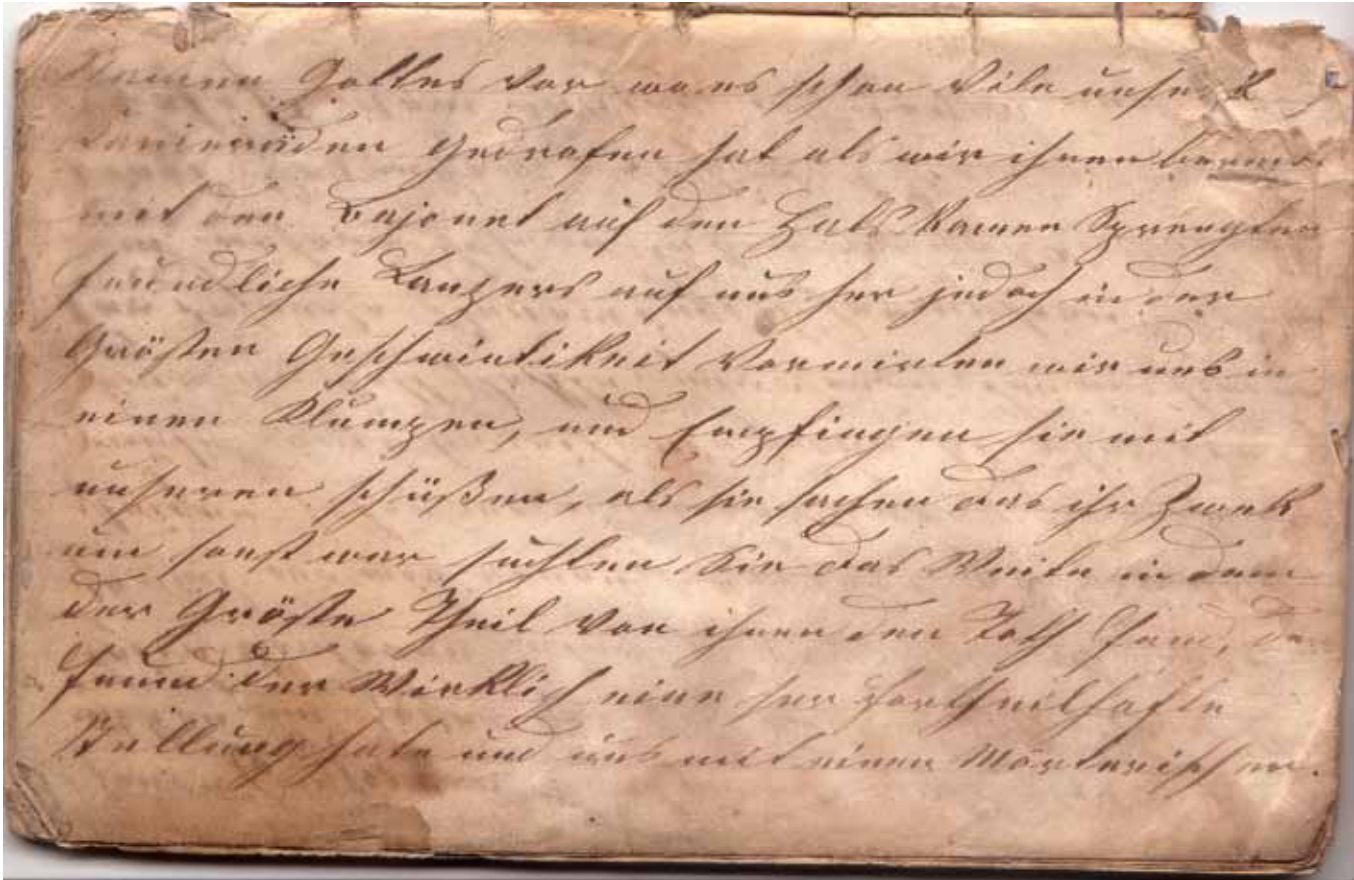 Namen Gottes vor wo es schon Vile unserer
Kamieräden gedrofen hat als wir ihnen
mit den Bajonet auf den Hals kamen Sprengten
feundliche Lanzers auf uns her jedoch in der
Grösten Geschwintikeit Vormirten wir uns in
einen Klumpen, und Empfingen sie mit
unseren schüßen, als sie sachen das ihr Zwek
um sonst war suchten Sie das Weite in dem
der Gröste Theil von ihnen den Toth fand, der
feund der Wirklich eine ser Vortheilhafte
Stellung hate und uns mit einen Mörterischen